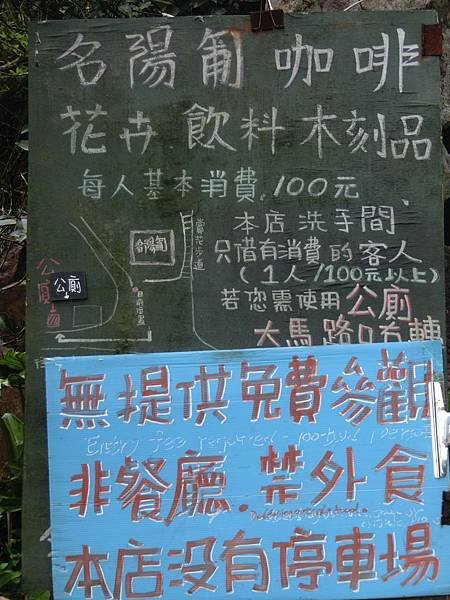 名陽匍咖啡
花卉飲料木刻品
每人基本消費100元、
本店洗手間
只借有消費的客人
(1人/100元以上)
若您需使用公廁
大馬路口右轉
名陽匍
賞花步道
公廁
公廁
無提供免費參觀
Entry fee required-100
非餐廳.禁外食
本店沒有停車場